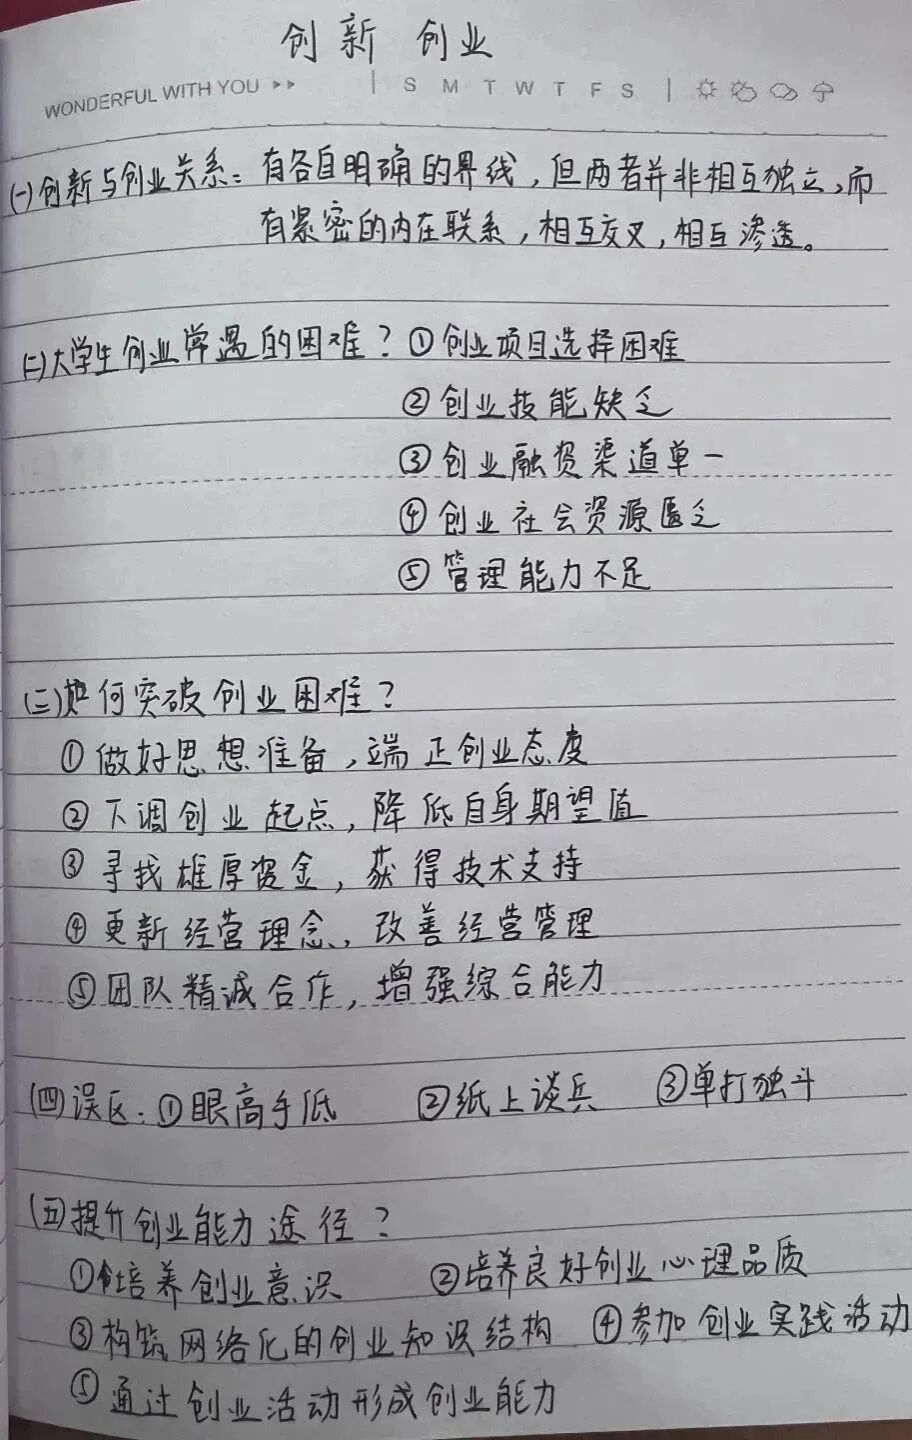 创新 创业
WONDERFUL WITH YOU | S M T W T F S |
(一)创新与创业关系：有各自明确的界线，但两者并非相互独立，而
有紧密的内在联系，相互交叉，相互渗透。
(二)大学生创业常遇的困难？①创业项目选择困难
②创业技能缺乏
③创业融资渠道单一
④创业社会资源匮乏
⑤管理能力不足
(三)如何突破创业困难？
①做好思想准备，端正创业态度
②下调创业起点，降低自身期望值
③寻找雄厚资金，获得技术支持
④更新经营理念，改善经营管理
⑤团队精诚合作，增强综合能力
(四)误区：①眼高手低 ②纸上谈兵 ③单打独斗
(五)提升创业能力途径？
①培养创业意识 ②培养良好创业心理品质
③构筑网络化的创业知识结构 ④参加创业实践活动
⑤通过创业活动形成创业能力